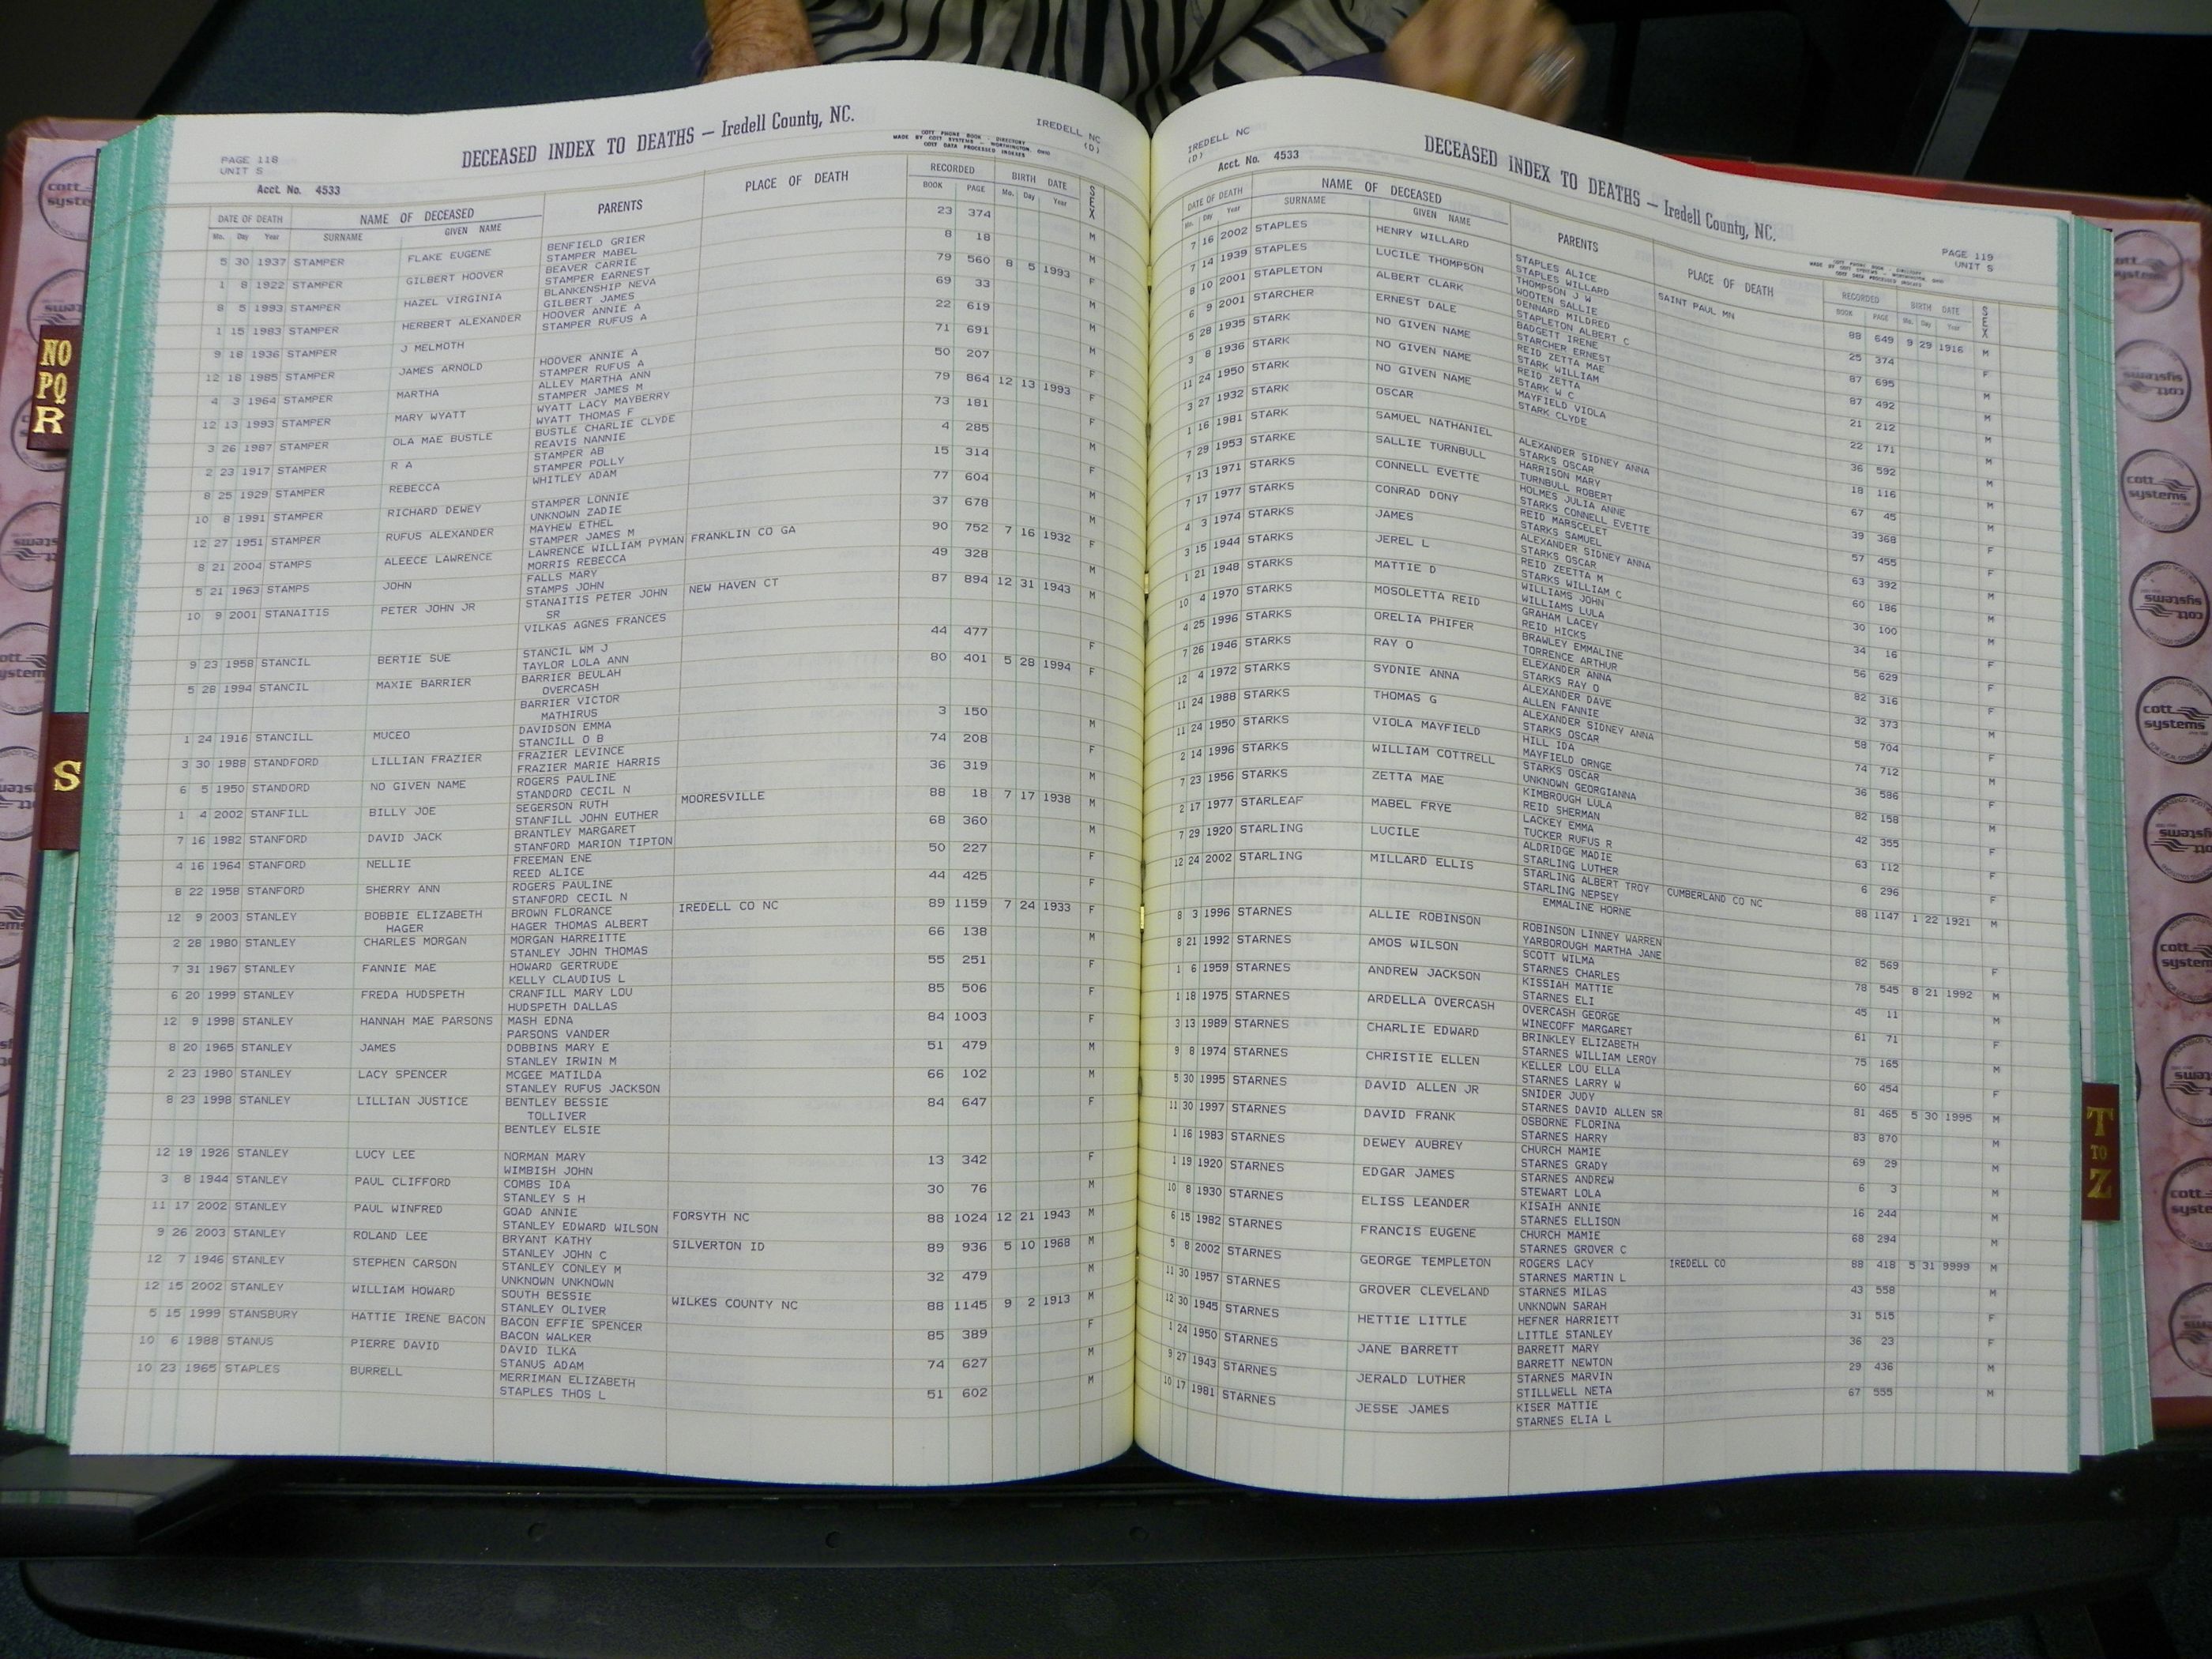 PAGE 118
UNIT S
DECEASED INDEX TO DEATHS — Iredell County, NC.
COTT PHONE BOOK - DIRECTORY
MADE BY COTT SYSTEMS - WORTHINGTON, OHIO
COTT DATA PROCESSED INDEXES
IREDELL NC
(D)
Acct. No. 4533
DATE OF DEATH NAME OF DECEASED PARENTS PLACE OF DEATH RECORDED BIRTH DATE SEX
Mo. Day Year SURNAME GIVEN NAME BOOK PAGE Mo. Day Year
5 30 1937 STAMPER FLAKE EUGENE BENFIELD GRIER 23 374 M
STAMPER MABEL
1 8 1922 STAMPER GILBERT HOOVER BEAVER CARRIE 8 18 M
STAMPER EARNEST
8 5 1993 STAMPER HAZEL VIRGINIA BLANKENSHIP NEVA 79 560 8 5 1993 F
GILBERT JAMES
1 15 1983 STAMPER HERBERT ALEXANDER HOOVER ANNIE A 69 33 M
STAMPER RUFUS A
9 18 1936 STAMPER J MELMOTH 22 619
12 18 1985 STAMPER JAMES ARNOLD HOOVER ANNIE A 71 691 M
STAMPER RUFUS A
4 3 1964 STAMPER MARTHA ALLEY MARTHA ANN 50 207 F
STAMPER JAMES M
12 13 1993 STAMPER MARY WYATT WYATT LACY MAYBERRY 79 864 12 13 1993 F
WYATT THOMAS F
3 26 1987 STAMPER OLA MAE BUSTLE BUSTLE CHARLIE CLYDE 73 181 F
REAVIS NANNIE
2 23 1917 STAMPER R A STAMPER AB 4 285 M
STAMPER POLLY
8 25 1929 STAMPER REBECCA WHITLEY ADAM 15 314 F
10 8 1991 STAMPER RICHARD DEWEY STAMPER LONNIE 77 604 M
UNKNOWN ZADIE
12 27 1951 STAMPER RUFUS ALEXANDER MAYHEW ETHEL 37 678 M
STAMPER JAMES M
8 21 2004 STAMPS ALEECE LAWRENCE LAWRENCE WILLIAM PYMAN FRANKLIN CO GA 90 752 7 16 1932 F
MORRIS REBECCA
5 21 1963 STAMPS JOHN FALLS MARY 49 328 M
STAMPS JOHN
10 9 2001 STANAITIS PETER JOHN JR STANAITIS PETER JOHN NEW HAVEN CT 87 894 12 31 1943 M
SR
VILKAS AGNES FRANCES
9 23 1958 STANCIL BERTIE SUE STANCIL WM J 44 477 F
TAYLOR LOLA ANN
5 28 1994 STANCIL MAXIE BARRIER BARRIER BEULAH 80 401 5 28 1994 F
OVERCASH
BARRIER VICTOR
MATHIRUS
1 24 1916 STANCILL MUCEO DAVIDSON EMMA 3 150 M
STANCILL O B
3 30 1988 STANDFORD LILLIAN FRAZIER FRAZIER LEVINCE 74 208 F
FRAZIER MARIE HARRIS
6 5 1950 STANDORD NO GIVEN NAME ROGERS PAULINE 36 319 M
STANDORD CECIL N
1 4 2002 STANFILL BILLY JOE SEGERSON RUTH MOORESVILLE 88 18 7 17 1938 M
STANFILL JOHN EUTHER
7 16 1982 STANFORD DAVID JACK BRANTLEY MARGARET 68 360 M
STANFORD MARION TIPTON
4 16 1964 STANFORD NELLIE FREEMAN ENE 50 227 F
REED ALICE
8 22 1958 STANFORD SHERRY ANN ROGERS PAULINE 44 425 F
STANFORD CECIL N
12 9 2003 STANLEY BOBBIE ELIZABETH BROWN FLORANCE IREDELL CO NC 89 1159 7 24 1933 F
HAGER HAGER THOMAS ALBERT
2 28 1980 STANLEY CHARLES MORGAN MORGAN HARREITTE 66 138 M
STANLEY JOHN THOMAS
7 31 1967 STANLEY FANNIE MAE HOWARD GERTRUDE 55 251 F
KELLY CLAUDIUS L
6 20 1999 STANLEY FREDA HUDSPETH CRANFILL MARY LOU 85 506 F
HUDSPETH DALLAS
12 9 1998 STANLEY HANNAH MAE PARSONS MASH EDNA 84 1003 F
PARSONS VANDER
8 20 1965 STANLEY JAMES DOBBINS MARY E 51 479 M
STANLEY IRWIN M
2 23 1980 STANLEY LACY SPENCER MCGEE MATILDA 66 102 M
STANLEY RUFUS JACKSON
8 23 1998 STANLEY LILLIAN JUSTICE BENTLEY BESSIE 84 647 F
TOLLIVER
BENTLEY ELSIE
12 19 1926 STANLEY LUCY LEE NORMAN MARY 13 342 F
WIMBISH JOHN
3 8 1944 STANLEY PAUL CLIFFORD COMBS IDA 30 76 M
STANLEY S H
11 17 2002 STANLEY PAUL WINFRED GOAD ANNIE FORSYTH NC 88 1024 12 21 1943 M
STANLEY EDWARD WILSON
9 26 2003 STANLEY ROLAND LEE BRYANT KATHY SILVERTON ID 89 936 5 10 1968 M
STANLEY JOHN C
12 7 1946 STANLEY STEPHEN CARSON STANLEY CONLEY M 32 479 M
UNKNOWN UNKNOWN
12 15 2002 STANLEY WILLIAM HOWARD SOUTH BESSIE WILKES COUNTY NC 88 1145 9 2 1913 M
STANLEY OLIVER
5 15 1999 STANSBURY HATTIE IRENE BACON BACON EFFIE SPENCER 85 389 F
BACON WALKER
10 6 1988 STANUS PIERRE DAVID DAVID ILKA 74 627 M
STANUS ADAM
10 23 1965 STAPLES BURRELL MERRIMAN ELIZABETH 51 602 M
STAPLES THOS L
IREDELL NC
(D)
DECEASED INDEX TO DEATHS — Iredell County, NC.
COTT PHONE BOOK - DIRECTORY
MADE BY COTT SYSTEMS - WORTHINGTON, OHIO
COTT DATA PROCESSED INDEXES
PAGE 119
UNIT S
Acct. No. 4533
DATE OF DEATH NAME OF DECEASED PARENTS PLACE OF DEATH RECORDED BIRTH DATE SEX
Mo. Day Year SURNAME GIVEN NAME BOOK PAGE Mo. Day Year
7 16 2002 STAPLES HENRY WILLARD STAPLES ALICE SAINT PAUL MN 88 649 9 29 1916 M
STAPLES WILLARD
7 14 1939 STAPLES LUCILE THOMPSON THOMPSON J W 25 374 F
WOOTEN SALLIE
8 10 2001 STAPLETON ALBERT CLARK DENNARD MILDRED 87 695 M
STAPLETON ALBERT C
6 9 2001 STARCHER ERNEST DALE BADGETT IRENE 87 492
STARCHER ERNEST
5 28 1935 STARK NO GIVEN NAME REID ZETTA MAE 21 212 M
STARK WILLIAM
3 8 1936 STARK NO GIVEN NAME REID ZETTA 22 171 M
STARK W C
11 24 1950 STARK NO GIVEN NAME MAYFIELD VIOLA 36 592 M
STARK CLYDE
3 27 1932 STARK OSCAR 18 116 M
1 16 1981 STARK SAMUEL NATHANIEL ALEXANDER SIDNEY ANNA 67 45 M
STARKS OSCAR
7 29 1953 STARKE SALLIE TURNBULL HARRISON MARY 39 368 F
TURNBULL ROBERT
7 13 1971 STARKS CONNELL EVETTE HOLMES JULIA ANNE 57 455 F
STARKS CONNELL EVETTE
7 17 1977 STARKS CONRAD DONY REID MARSCELET 63 392 M
STARKS SAMUEL
4 3 1974 STARKS JAMES ALEXANDER SIDNEY ANNA 60 186 M
STARKS OSCAR
3 15 1944 STARKS JEREL L REID ZEETTA M 30 100 M
STARKS WILLIAM C
1 21 1948 STARKS MATTIE D WILLIAMS JOHN 34 16 F
WILLIAMS LULA
10 4 1970 STARKS MOSOLETTA REID GRAHAM LACEY 56 629 F
REID HICKS
4 25 1996 STARKS ORELIA PHIFER BRAWLEY EMMALINE 82 316 F
TORRENCE ARTHUR
7 26 1946 STARKS RAY O ELEXANDER ANNA 32 373 M
STARKS RAY O
12 4 1972 STARKS SYDNIE ANNA ALEXANDER DAVE 58 704 F
ALLEN FANNIE
11 24 1988 STARKS THOMAS G ALEXANDER SIDNEY ANNA 74 712 M
STARKS OSCAR
11 24 1950 STARKS VIOLA MAYFIELD HILL IDA 36 586 F
MAYFIELD ORNGE
2 14 1996 STARKS WILLIAM COTTRELL STARKS OSCAR 82 158 M
UNKNOWN GEORGIANNA
7 23 1956 STARKS ZETTA MAE KIMBROUGH LULA 42 355 F
REID SHERMAN
2 17 1977 STARLEAF MABEL FRYE LACKEY EMMA 63 112 F
TUCKER RUFUS R
7 29 1920 STARLING LUCILE ALDRIDGE MADIE 6 296 F
STARLING LUTHER
12 24 2002 STARLING MILLARD ELLIS STARLING ALBERT TROY CUMBERLAND CO NC 88 1147 1 22 1921 M
STARLING NEPSEY
EMMALINE HORNE
8 3 1996 STARNES ALLIE ROBINSON ROBINSON LINNEY WARREN 82 569 F
YARBOROUGH MARTHA JANE
8 21 1992 STARNES AMOS WILSON SCOTT WILMA 78 545 8 21 1992 M
STARNES CHARLES
1 6 1959 STARNES ANDREW JACKSON KISSIAH MATTIE 45 11 M
STARNES ELI
1 18 1975 STARNES ARDELLA OVERCASH OVERCASH GEORGE 61 71 F
WINECOFF MARGARET
3 13 1989 STARNES CHARLIE EDWARD BRINKLEY ELIZABETH 75 165 M
STARNES WILLIAM LEROY
9 8 1974 STARNES CHRISTIE ELLEN KELLER LOU ELLA 60 454 F
STARNES LARRY W
5 30 1995 STARNES DAVID ALLEN JR SNIDER JUDY 81 465 5 30 1995 M
STARNES DAVID ALLEN SR
11 30 1997 STARNES DAVID FRANK OSBORNE FLORINA 83 870 M
STARNES HARRY
1 16 1983 STARNES DEWEY AUBREY CHURCH MAMIE 69 29 M
STARNES GRADY
1 19 1920 STARNES EDGAR JAMES STARNES ANDREW 6 3 M
STEWART LOLA
10 8 1930 STARNES ELISS LEANDER KISAIH ANNIE 16 244 M
STARNES ELLISON
6 15 1982 STARNES FRANCIS EUGENE CHURCH MAMIE 68 294 M
STARNES GROVER C
5 8 2002 STARNES GEORGE TEMPLETON ROGERS LACY IREDELL CO 88 418 5 31 9999 M
STARNES MARTIN L
11 30 1957 STARNES GROVER CLEVELAND STARNES MILAS 43 558 M
UNKNOWN SARAH
12 30 1945 STARNES HETTIE LITTLE HEFNER HARRIETT 31 515 F
LITTLE STANLEY
1 24 1950 STARNES JANE BARRETT BARRETT MARY 36 23 F
BARRETT NEWTON
9 27 1943 STARNES JERALD LUTHER STARNES MARVIN 29 436 M
STILLWELL NETA
10 17 1981 STARNES JESSE JAMES KISER MATTIE 67 555 M
STARNES ELIA L
NO
PQ
R
S
T
TO
Z
cott
systems